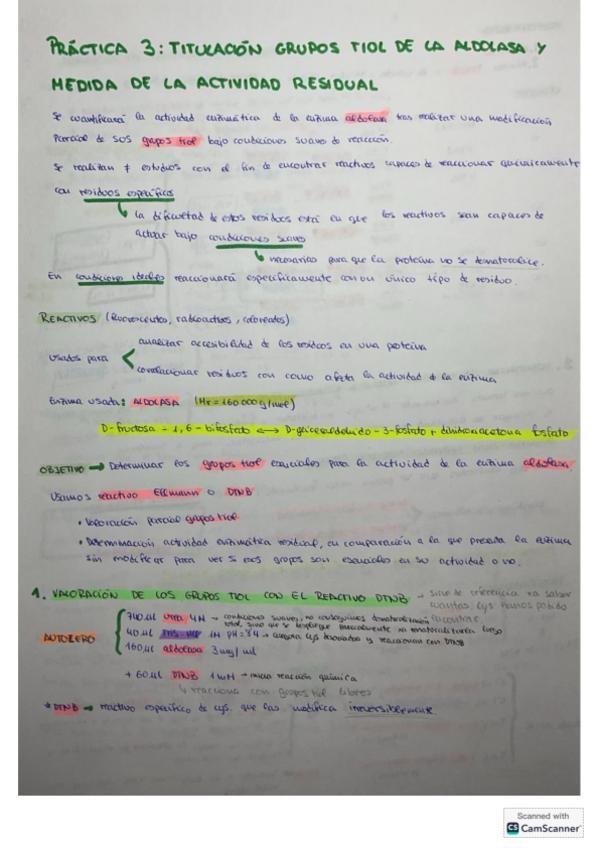 PRÁCTICA 3: TITULACIÓN GRUPOS TIOL DE LA ALDOLASA Y
MEDIDA DE LA ACTIVIDAD RESIDUAL
Se cuantificará la actividad enzimática de la enzima aldolasa tras realizar una modificación
parcial de sus grupos tiol bajo condiciones suaves de reacción.
Se realizan ≠ estudios con el fin de encontrar reactivos capaces de reaccionar químicamente
con residuos específicos
la dificultad de estos residuos está en que los reactivos sean capaces de
actuar bajo condiciones suaves
necesarias para que la proteína no se desnaturalice.
En condiciones ideales reaccionará específicamente con un único tipo de residuo.
REACTIVOS (fluorescentes, radioactivos, coloreados)
usados para
analizar accesibilidad de los residuos en una proteína
correlacionar residuos con como afecta la actividad d la enzima
Enzima usada: ALDOLASA (Mr = 160000 g/mol)
D-fructosa - 1,6 - bifosfato ⟷ D-gliceraldehido - 3-fosfato + dihidroxiacetona fosfato
OBJETIVO → Determinar los grupos tiol esenciales para la actividad de la enzima aldolasa.
Usamos reactivo Ellmann o DTNB
• Valoración parcial grupos tiol
• Determinación actividad enzimática residual, en comparación a la que presenta la enzima
sin modificar para ver si esos grupos son esenciales en su actividad o no.
1. VALORACIÓN DE LOS GRUPOS TIOL CON EL REACTIVO DTNB → sirve de referencia para saber
cuántas cys hemos podido
encontrar
AUTOCERO
740 µl urea 4M → condiciones suaves, no conseguimos desnaturalización
total, sino que se despliegue parcialmente
40 µl 1M pH = 8'4 →
160 µl aldolasa 3 mg/ml
+ 60 µl DTNB 1 mM → inicia reacción química
↳ reacciona con grupos tiol libres
* DTNB → reactivo específico de cys. que las modifica irreversiblemente.
Scanned with
CS CamScanner